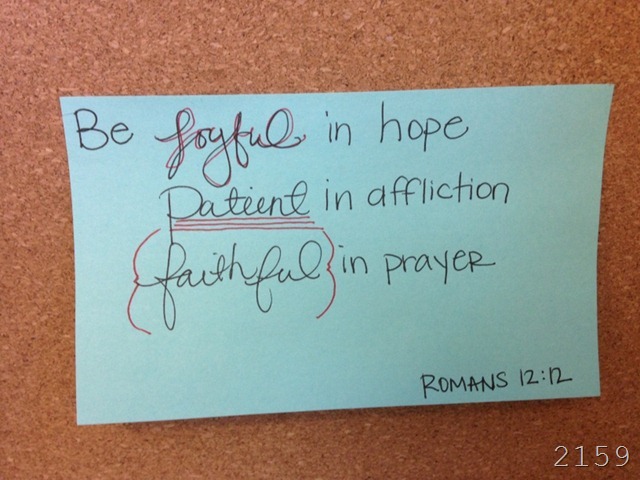 Be joyful in hope
patient in affliction
{faithful} in prayer
ROMANS 12:12
2159